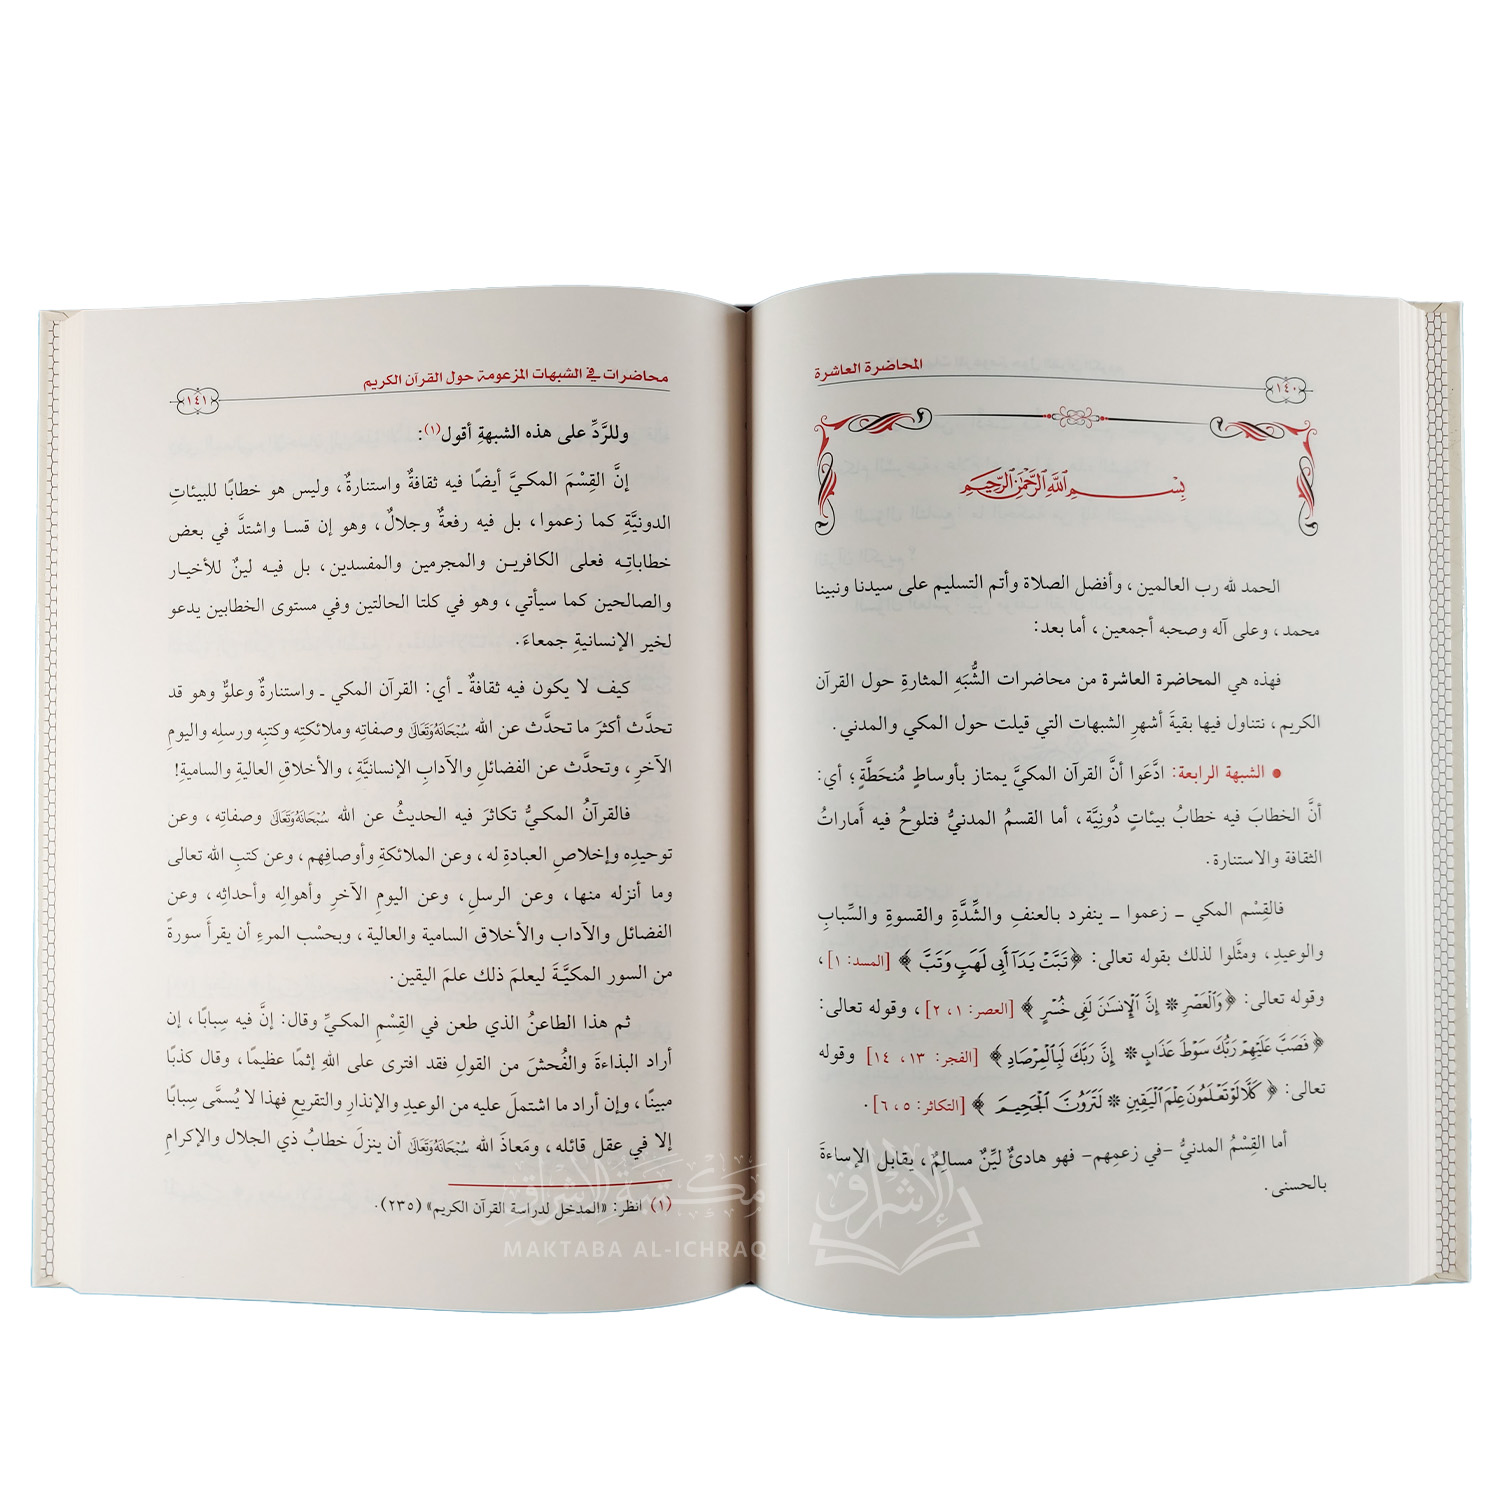 المحاضرة العاشرة
١٤٠
بِسْمِ اللَّهِ الرَّحْمَٰنِ الرَّحِيمِ
الحمد لله رب العالمين، وأفضل الصلاة وأتم التسليم على سيدنا ونبينا
محمد، وعلى آله وصحبه أجمعين، أما بعد:
فهذه هي المحاضرة العاشرة من محاضرات الشُّبَهِ المثارةِ حول القرآن
الكريم، نتناول فيها بقيةَ أشهرِ الشبهات التي قيلت حول المكي والمدني.
● الشبهة الرابعة: ادَّعَوا أنَّ القرآن المكيَّ يمتاز بأوساطٍ مُنحَطَّةٍ؛ أي:
أنَّ الخطابَ فيه خطابُ بيئاتٍ دُونِيَّة، أما القسمُ المدنيُّ فتلوحُ فيه أَماراتُ
الثقافة والاستنارة.
فالقِسْم المكي ـ زعموا ـ ينفرد بالعنفِ والشِّدَّةِ والقسوةِ والسِّبابِ
والوعيدِ، ومثَّلوا لذلك بقوله تعالى: ﴿تَبَّتۡ يَدَآ أَبِي لَهَبٖ وَتَبَّ﴾ [المسد: ١]،
وقوله تعالى: ﴿وَٱلۡعَصۡرِ * إِنَّ ٱلۡإِنسَٰنَ لَفِي خُسۡرٍ﴾ [العصر: ١، ٢]، وقوله تعالى:
﴿فَصَبَّ عَلَيۡهِمۡ رَبُّكَ سَوۡطَ عَذَابٍ * إِنَّ رَبَّكَ لَبِٱلۡمِرۡصَادِ﴾ [الفجر: ١٣، ١٤] وقوله
تعالى: ﴿كَلَّا لَوۡ تَعۡلَمُونَ عِلۡمَ ٱلۡيَقِينِ * لَتَرَوُنَّ ٱلۡجَحِيمَ﴾ [التكاثر: ٥، ٦].
أما القِسْمُ المدنيُّ -في زعمِهم- فهو هادئٌ ليِّنٌ مسالِمٌ، يقابل الإساءةَ
بالحسنى.
محاضرات في الشبهات المزعومة حول القرآن الكريم
١٤١
وللرَّدِّ على هذه الشبهةِ أقول(١):
إنَّ القِسْمَ المكيَّ أيضًا فيه ثقافةٌ واستنارةٌ، وليس هو خطابًا للبيئاتِ
الدونيَّةِ كما زعموا، بل فيه رفعةٌ وجلالٌ، وهو إن قسا واشتدَّ في بعض
خطاباتِه فعلى الكافرين والمجرمين والمفسدين، بل فيه لينٌ للأخيار
والصالحين كما سيأتي، وهو في كلتا الحالتين وفي مستوى الخطابين يدعو
لخير الإنسانيةِ جمعاءَ.
كيف لا يكون فيه ثقافةٌ ـ أي: القرآن المكي ـ واستنارةٌ وعلوٌّ وهو قد
تحدَّث أكثرَ ما تحدَّث عن الله سُبْحَانَهُ وَتَعَالَى وصفاتِه وملائكتِه وكتبِه ورسلِه واليومِ
الآخرِ، وتحدَّث عن الفضائلِ والآدابِ الإنسانيَّةِ، والأخلاقِ العاليةِ والساميةِ!
فالقرآنُ المكيُّ تكاثرَ فيه الحديثُ عن الله سُبْحَانَهُ وَتَعَالَى وصفاتِه، وعن
توحيدِه وإخلاصِ العبادةِ له، وعن الملائكةِ وأوصافِهم، وعن كتبِ الله تعالى
وما أنزله منها، وعن الرسلِ، وعن اليومِ الآخرِ وأهوالِه وأحداثِه، وعن
الفضائل والآداب والأخلاق السامية والعالية، وبحسْب المرءِ أن يقرأَ سورةً
من السور المكيَّةَ ليعلمَ ذلك علمَ اليقين.
ثم هذا الطاعنُ الذي طعن في القِسْمِ المكيِّ وقال: إنَّ فيه سِبابًا، إن
أراد البذاءةَ والفُحشَ من القولِ فقد افترى على اللهِ إثمًا عظيمًا، وقال كذبًا
مبينًا، وإن أراد ما اشتملَ عليه من الوعيدِ والإنذارِ والتقريعِ فهذا لا يُسمَّى سِبابًا
إلا في عقل قائله، ومَعاذَ الله سُبْحَانَهُ وَتَعَالَى أن ينزلَ خطابُ ذي الجلال والإكرامِ
(١) انظر: «المدخل لدراسة القرآن الكريم» (٢٣٥).
مكتبة الإشراق
MAKTABA AL-ICHRAQ
الإشراق